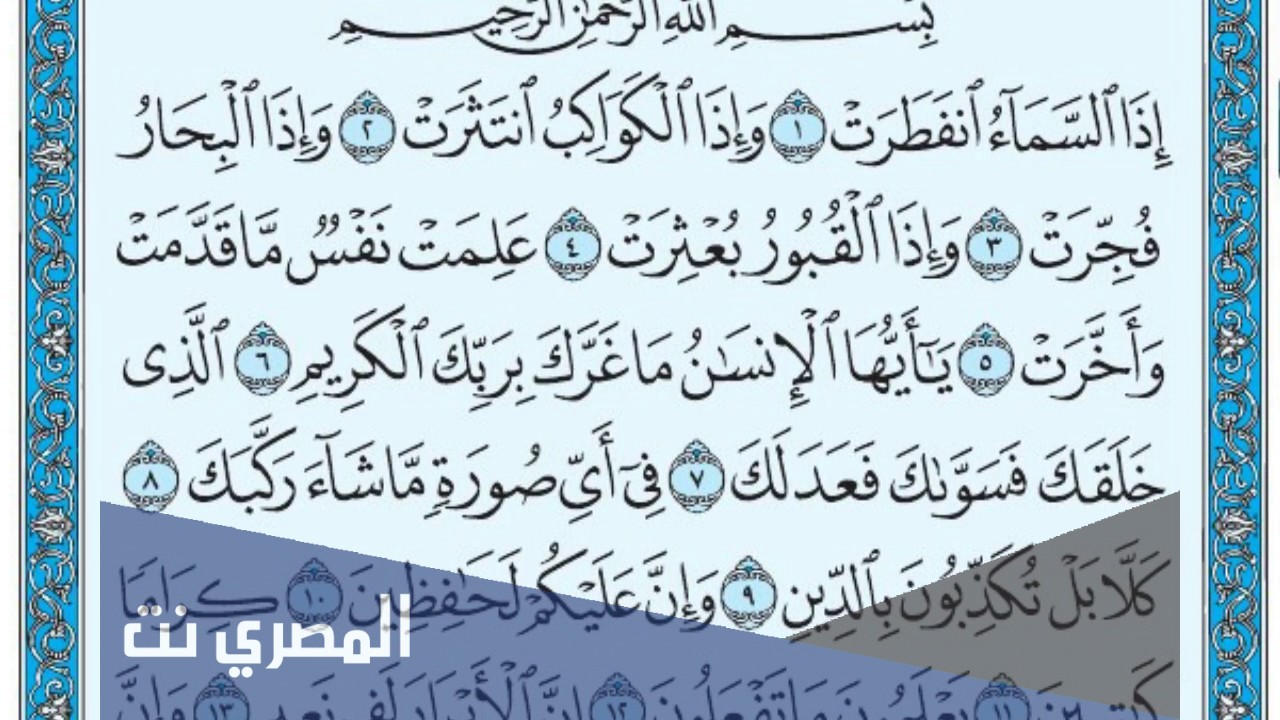 بِسْمِ ٱللَّهِ ٱلرَّحْمَٰنِ ٱلرَّحِيمِ
إِذَا ٱلسَّمَآءُ ٱنفَطَرَتْ ١ وَإِذَا ٱلْكَوَاكِبُ ٱنتَثَرَتْ ٢ وَإِذَا ٱلْبِحَارُ
فُجِّرَتْ ٣ وَإِذَا ٱلْقُبُورُ بُعْثِرَتْ ٤ عَلِمَتْ نَفْسٌ مَّا قَدَّمَتْ
وَأَخَّرَتْ ٥ يَٰٓأَيُّهَا ٱلْإِنسَٰنُ مَا غَرَّكَ بِرَبِّكَ ٱلْكَرِيمِ ٦ ٱلَّذِى
خَلَقَكَ فَسَوَّىٰكَ فَعَدَلَكَ ٧ فِىٓ أَىِّ صُورَةٍ مَّا شَآءَ رَكَّبَكَ ٨
كَلَّا بَلْ تُكَذِّبُونَ بِٱلدِّينِ ٩ وَإِنَّ عَلَيْكُمْ لَحَٰفِظِينَ ١٠ كِرَامًا
كَٰتِبِينَ ١١ يَعْلَمُونَ مَا تَفْعَلُونَ ١٢ إِنَّ ٱلْأَبْرَارَ لَفِى نَعِيمٍ ١٣ وَإِنَّ
المصري نت